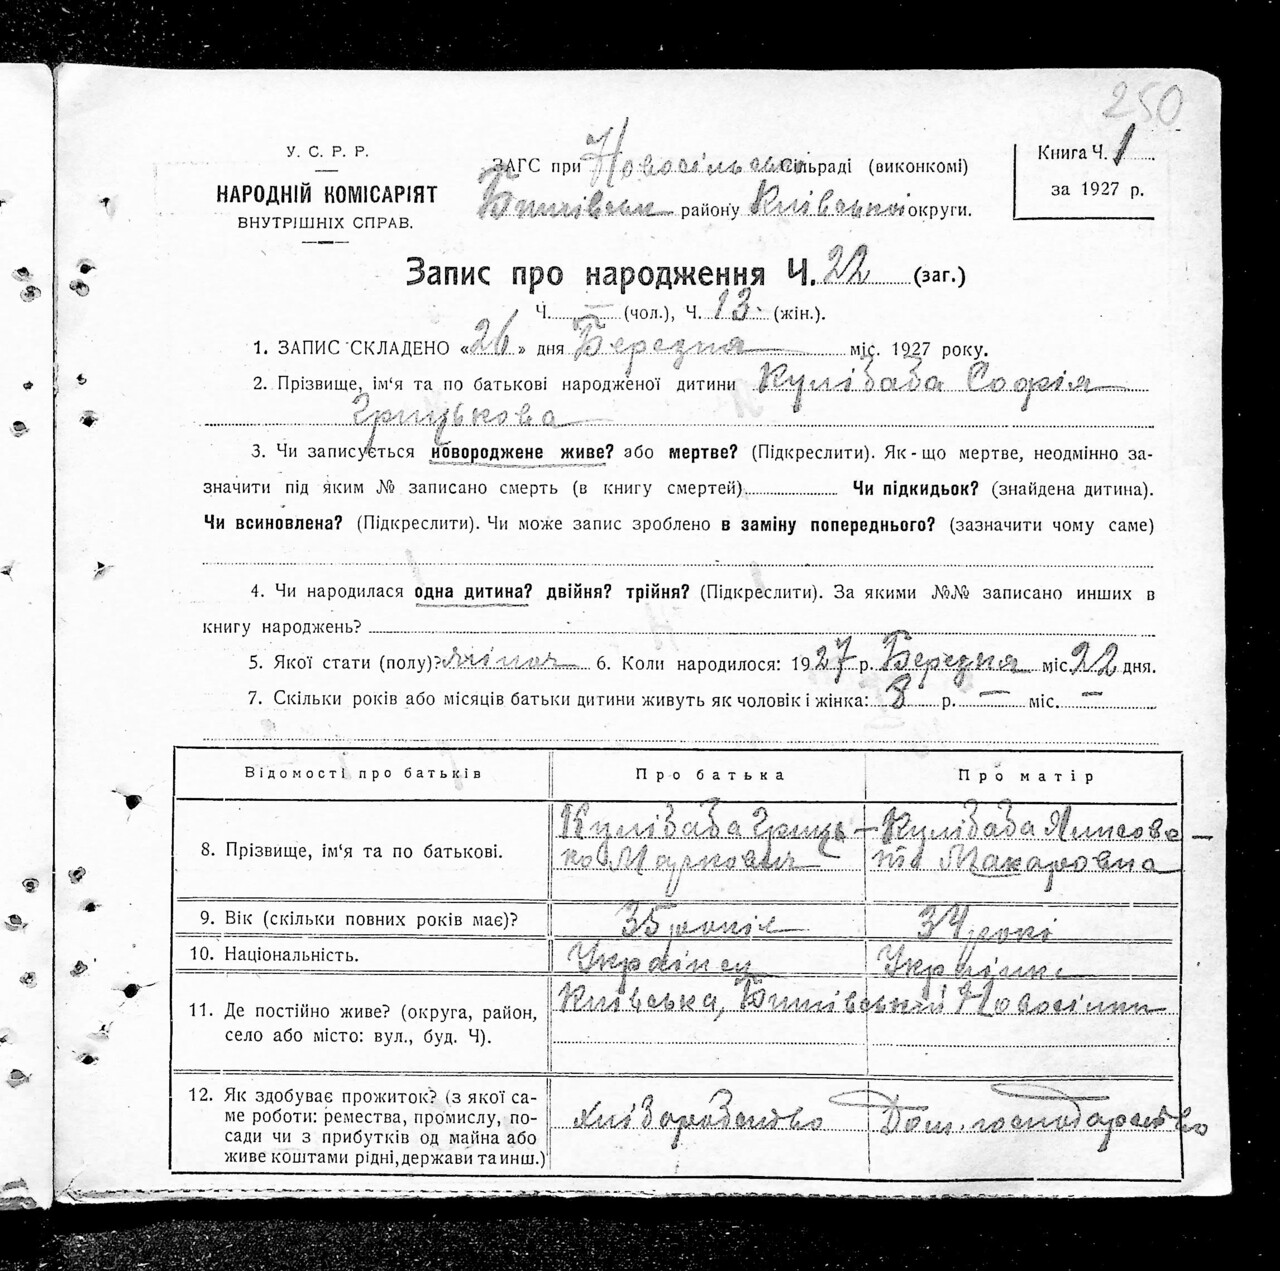 250
У. С. Р. Р.
НАРОДНІЙ КОМІСАРІЯТ
ВНУТРІШНІХ СПРАВ.
ЗАГС при Новосільськ Сільраді (виконкомі)
Бишівськ району Київської округи.
Книга Ч. 1
за 1927 р.
Запис про народження Ч. 22 (заг.)
Ч. — (чол.), Ч. 13 (жін.).
1. ЗАПИС СКЛАДЕНО «26» дня Березня міс. 1927 року.
2. Прізвище, ім'я та по батькові народженої дитини Кулібаба Софія
Грицькова
3. Чи записується новороджене живе? або мертве? (Підкреслити). Як-що мертве, неодмінно за-
значити під яким № записано смерть (в книгу смертей) Чи підкидьок? (знайдена дитина).
Чи всиновлена? (Підкреслити). Чи може запис зроблено в заміну попереднього? (зазначити чому саме)
4. Чи народилася одна дитина? двійня? трійня? (Підкреслити). За якими №№ записано инших в
книгу народжень?
5. Якої стати (полу)? жіноч 6. Коли народилося: 1927 р. Березня міс. 22 дня.
7. Скільки років або місяців батьки дитини живуть як чоловік і жінка: 8 р. — міс. —
Відомості про батьків Про батька Про матір
8. Прізвище, ім'я та по батькові.
Кулібаба Гриць-
ко Маркович
Кулібаба Лисаве-
та Макаровна
9. Вік (скільки повних років має)? 35 років 34 роки
10. Національність. Українец Українка
11. Де постійно живе? (округа, район,
село або місто: вул., буд. Ч).
Київська, Бишівський Новосілки
12. Як здобуває прожиток? (з якої са-
ме роботи: ремества, промислу, по-
сади чи з прибутків од майна або
живе коштами рідні, держави та инш.)
Хліборобство Дом. господарство